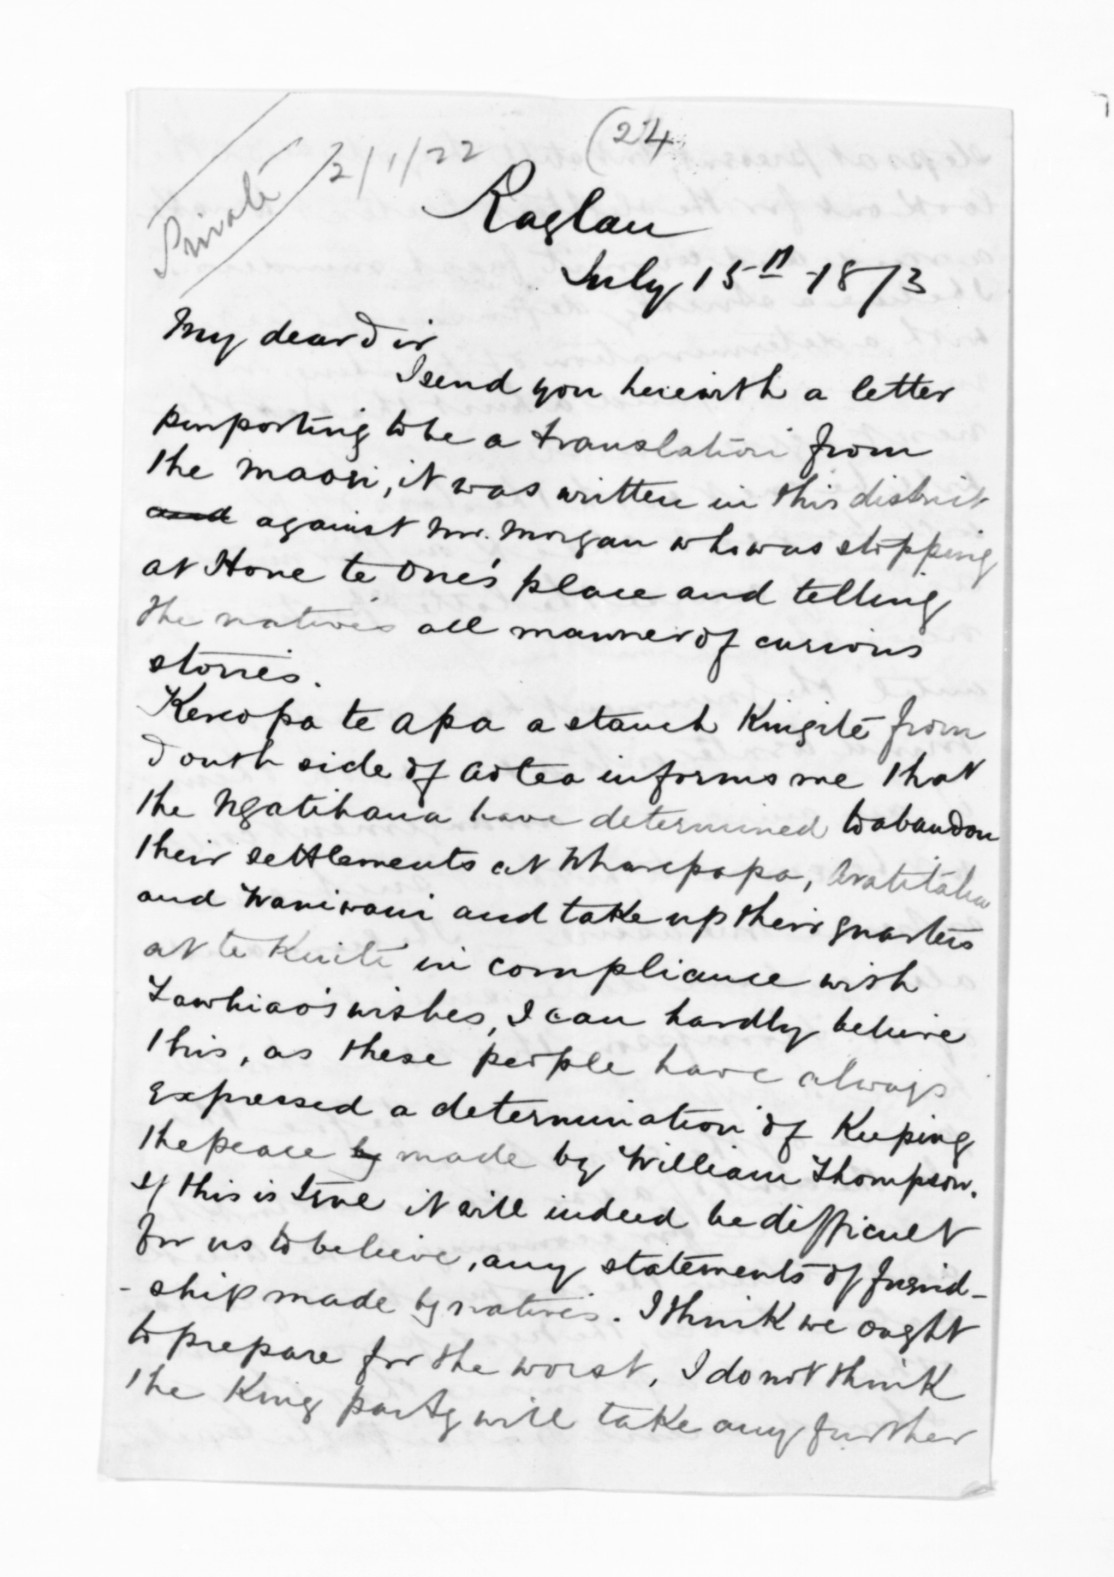 (24
Private 2/1/22
Raglan
July 15th 1873
My dear Sir
I send you herewith a letter
purporting to be a translation from
the maori, it was written in this district
and against Mr. Morgan who was stopping
at Hone te One's place and telling
the natives all manner of curious
stories.
Kereopa te apa a staunch Kingite from
South side of Aotea informs me that
the Ngatihaua have determined to abandon
their settlements at Wharepapa, Aratitaha
and Waniwani and take up their quarters
at te Kuiti in compliance with
Tawhiao's wishes, I can hardly believe
this, as these people have always
expressed a determination of Keeping
the peace by made by William Thompson.
If this is true it will indeed be difficult
for us to believe, any statements of friend-
-ship made by natives. I think we ought
to prepare for the worst, I do not think
the King party will take any further